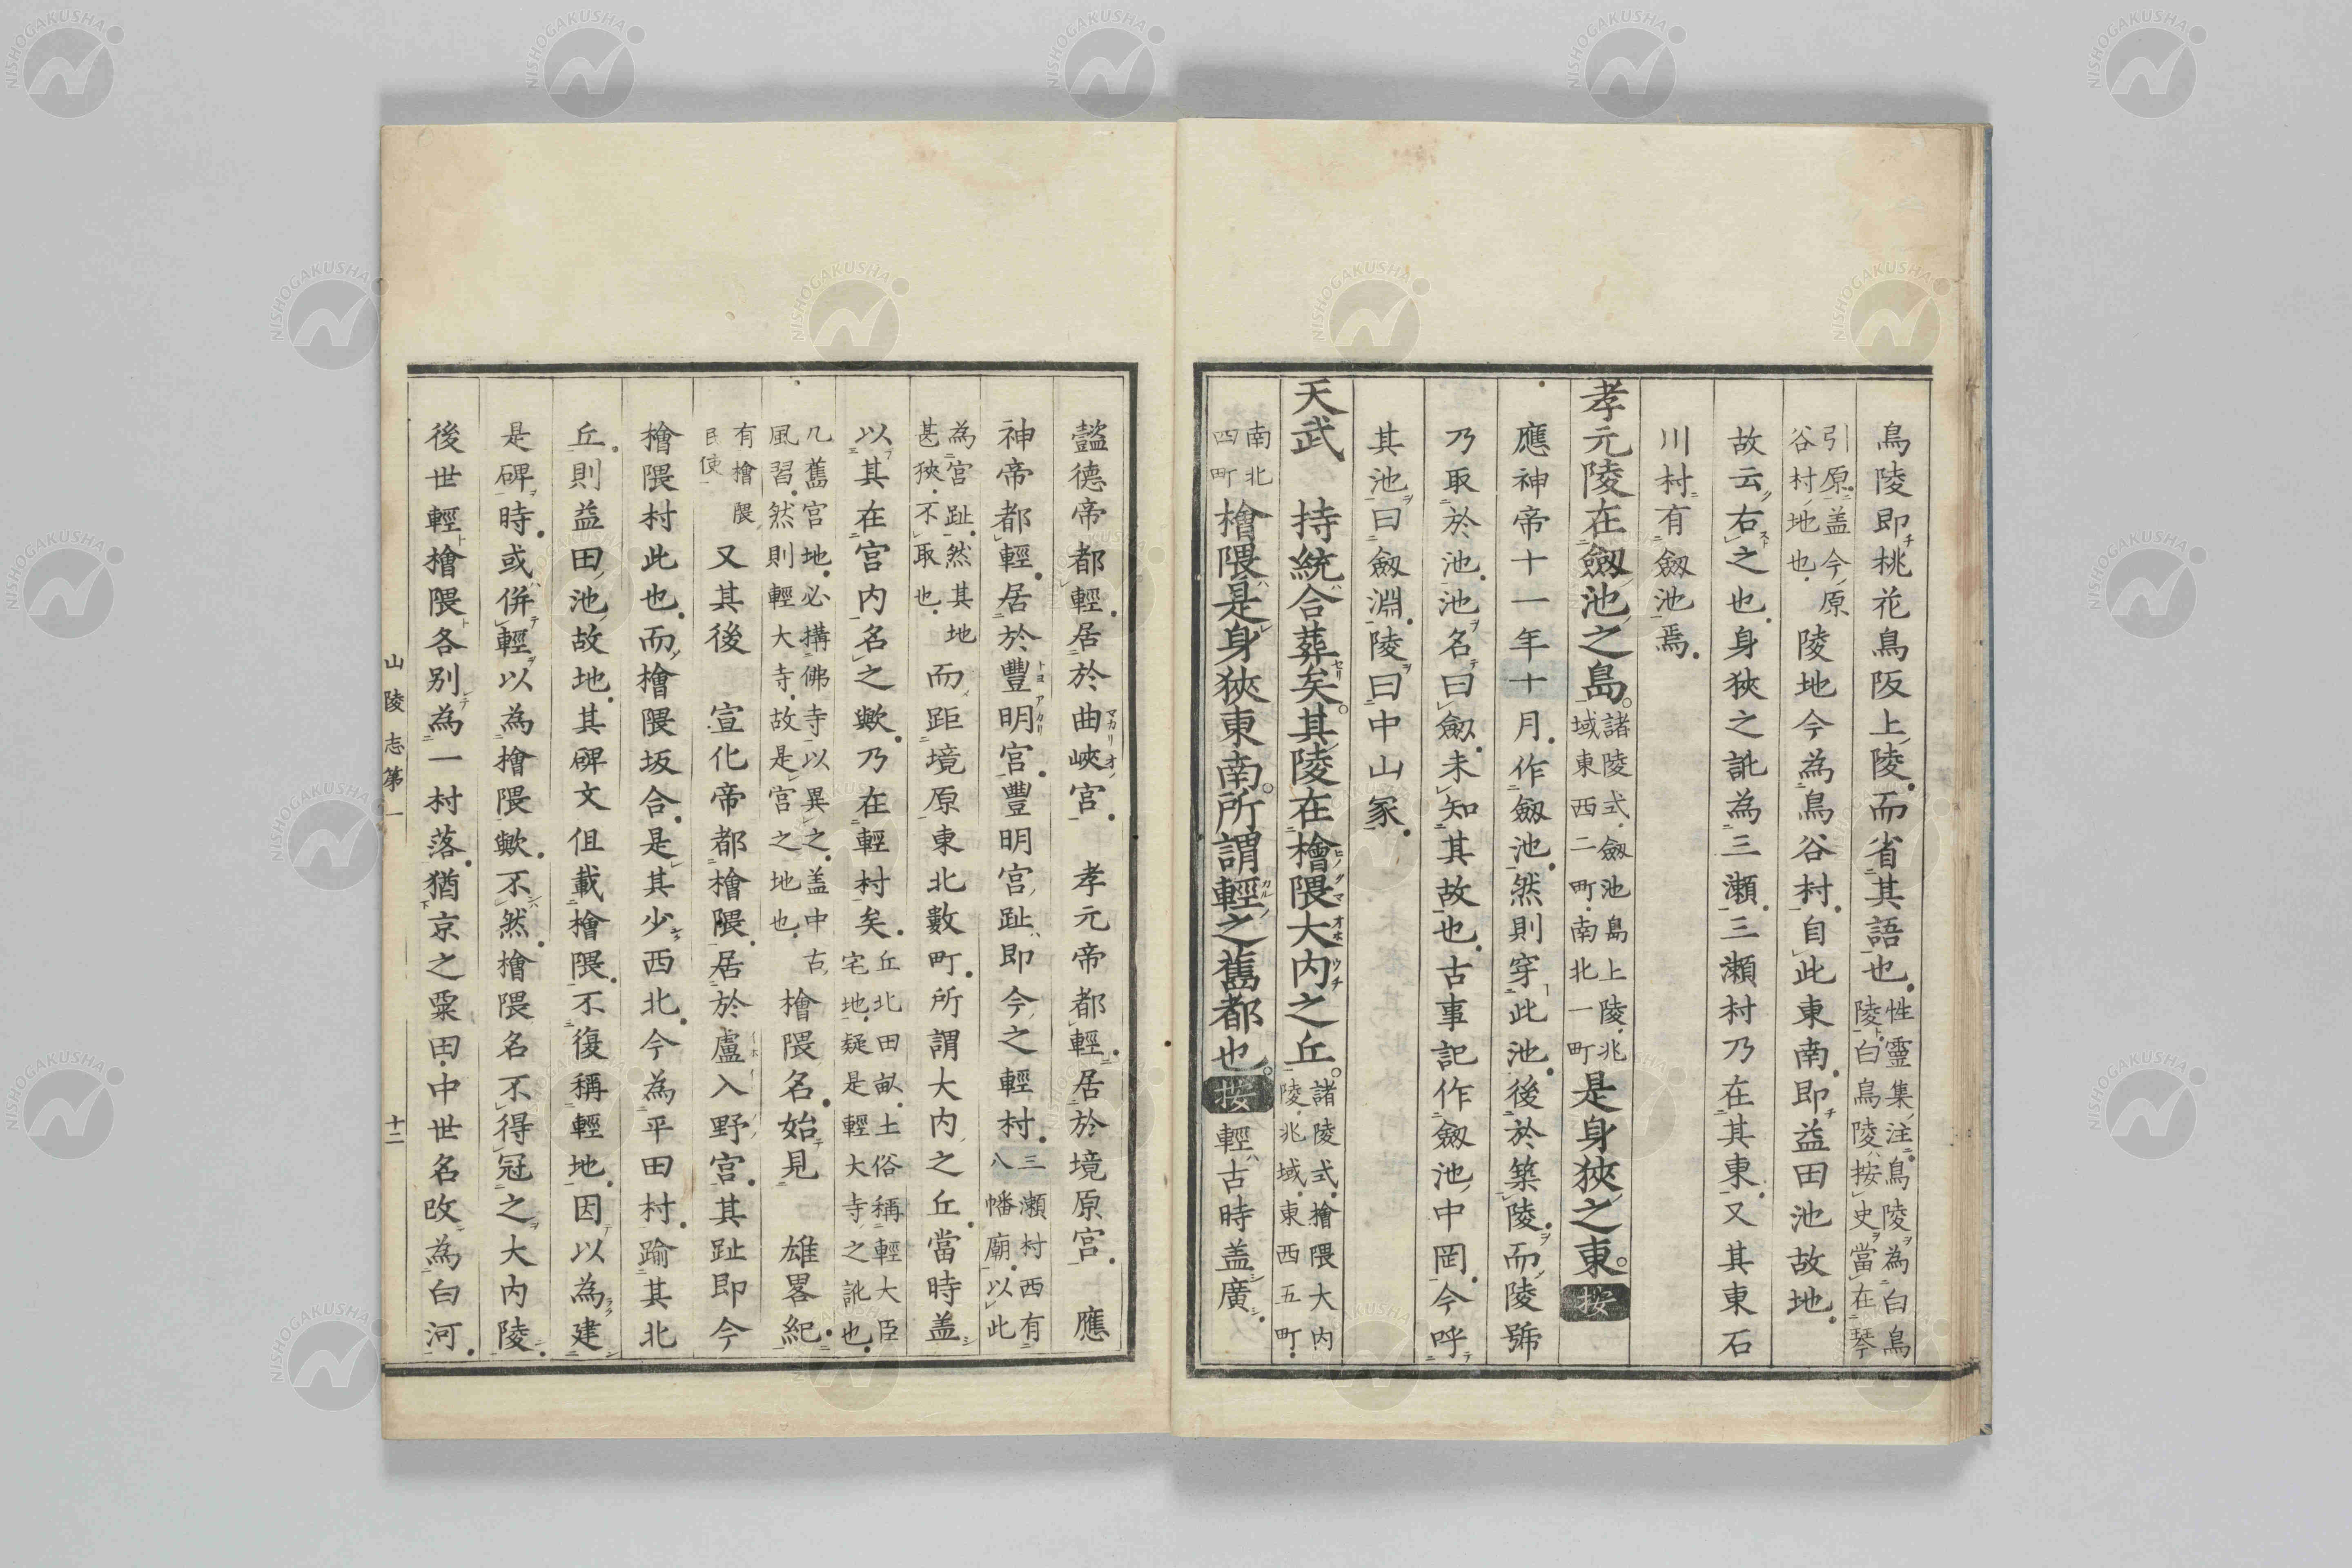 鳥陵即桃花鳥阪上陵而省其語也性靈集注鳥陵為白鳥陵白鳥陵按史當在琴
引原盖今原谷村地也陵地今為鳥谷村自此東南即益田池故地
故云右之也身狹之訛為三瀬三瀬村乃在其東又其東石
川村有劔池焉
孝元陵在劔池之島諸陵式劔池島上陵兆域東西二町南北一町是身狹之東按
應神帝十一年十月作劔池然則穿此池後於築陵而陵號
乃取於池池名曰劔未知其故也古事記作劔池中岡今呼
其池曰劔淵陵曰中山冢
天武 持統合葬矣其陵在檜隈大内之丘諸陵式檜隈大内陵兆域東西五町
南北四町檜隈是身狹東南所謂輕之舊都也按輕古時盖廣
懿德帝都輕居於曲峽宮 孝元帝都輕居於境原宮 應
神帝都輕居於豐明宮豐明宮趾即今之輕村三瀬村西有八幡廟以此
為宮趾然其地甚狹不取也而距境原東北數町所謂大内之丘當時盖
以其在宮内名之歟乃在輕村矣丘北田畝土俗稱輕大臣宅地疑是輕大寺之訛也
凡舊宮地必搆佛寺以異之盖中古風習然則輕大寺故是宮之地也檜隈名始見 雄畧紀
有檜隈民使又其後 宣化帝都檜隈居於盧入野宮其趾即今
檜隈村此也而檜隈坂合是其少西北今為平田村踰其北
丘則益田池故地其碑文但載檜隈不復稱輕地因以為建
是碑時或併輕以為檜隈歟不然檜隈名不得冠之大内陵
後世輕檜隈各別為一村落猶京之粟田中世名改為白河
山陵志第一 十二
NISHOGAKUSHA